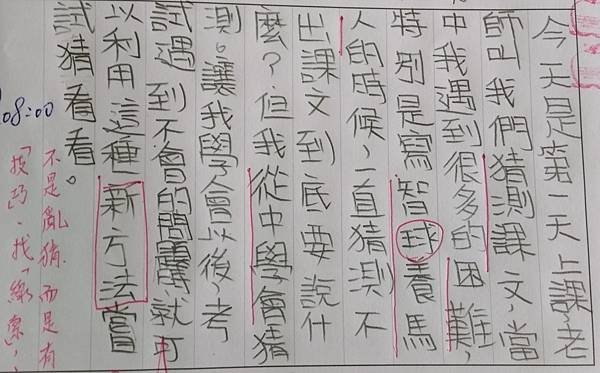 今天是第一天上課,老
師叫我們猜測課文,當
中我遇到很多的困難,
特別是寫智球養馬
人的時候,一直猜測不
出課文到底要說什
麼?但我從中學會猜
測。讓我學會以後,考
試遇到不會的問題就可
以利用這種新方法嘗
試猜看看。
08:00
不是亂猜而是有
「技巧、找「線索」,